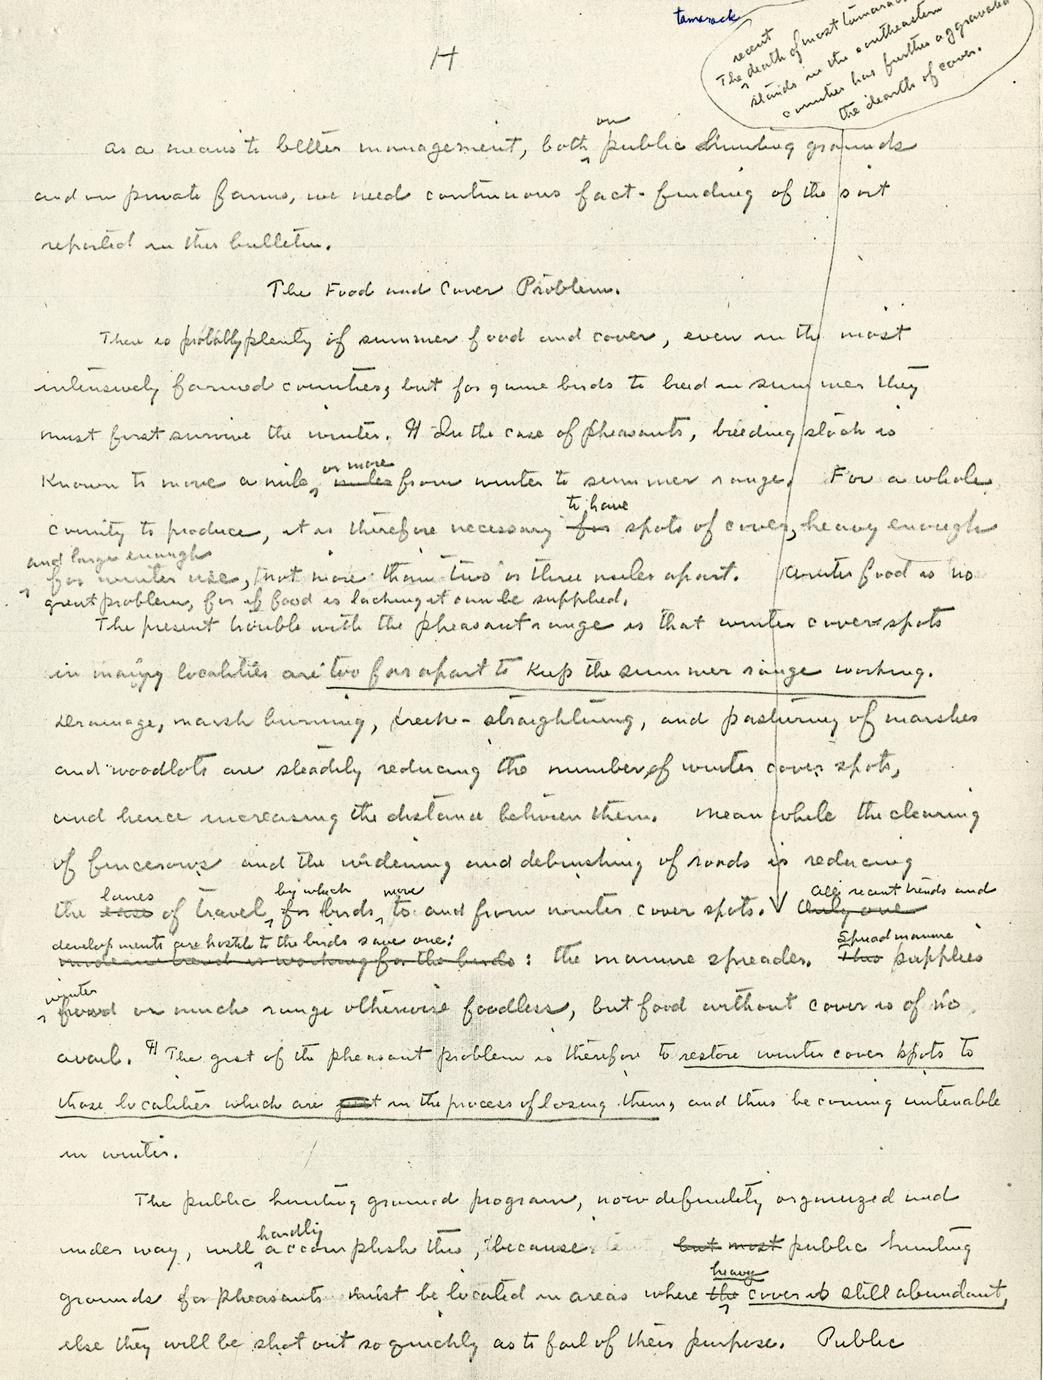 tamarack
recent
The death of most tamarack
stands in the southeastern
counties has further aggravated
the dearth of cover.
14
on
As a means to better management, both public hunting grounds
and on private farms, we need continuous fact-finding of the sort
reported in this bulletin.
The Food and Cover Problem.
There is probably plenty of summer food and cover, even in the most
intensively farmed counties, but for game birds to breed in summer they
must first survive the winter. ¶ In the case of pheasants, breeding stock is
or more
known to move a mile, miles from winter to summer range. For a whole
to have
county to produce, it is therefore necessary for spots of cover, heavy enough
and large enough
for winter use, not more than two or three miles apart. Winter food is no
great problem, for if food is lacking it can be supplied.
The present trouble with the pheasant range is that winter cover spots
in many localities are too far apart to keep the summer range working.
Drainage, marsh burning, creek-straightening, and pasturing of marshes
and woodlots are steadily reducing the number of winter cover spots,
and hence increasing the distance between them. Meanwhile the clearing
of fencerows and the widening and debrushing of roads is reducing
lanes by which move all recent trends and
the ease of travel for birds to and from winter cover spots. Only one
developments are hostile to the birds save one: Spread manure
trend is working for the birds: the manure spreader. This supplies
winter
food on much range otherwise foodless, but food without cover is of no
avail. ¶ The gist of the pheasant problem is therefore to restore winter cover spots to
those localities which are just in the process of losing them, and thus becoming untenable
in winter.
The public hunting ground program, now definitely organized and
hardly
under way, will accomplish this, because but most public hunting
heavy
grounds for pheasants must be located in areas where the cover is still abundant,
else they will be shot out so quickly as to fail of their purpose. Public